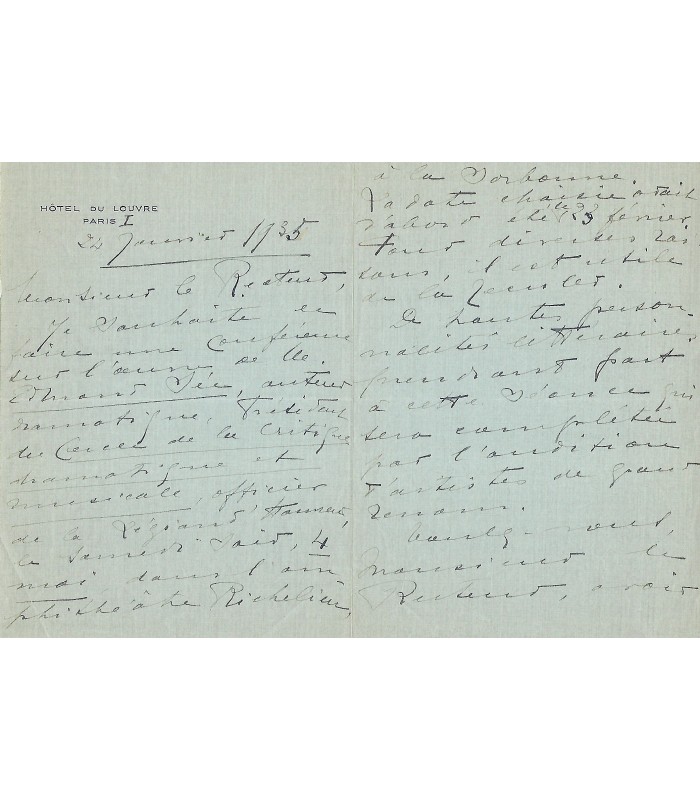 HÔTEL DU LOUVRE
PARIS I
22 Janvier 1935
Monsieur le Recteur,
Je souhaite
faire une Conférence
sur l'œuvre de M.
Edmond Sée, auteur
dramatique, Président
du Cercle de la Critique
dramatique et
musicale, officier
de la Légion d'Honneur,
le Samedi Soir, 4
mai, dans l'am
phithéâtre Richelieu,
à la Sorbonne.
La date choisie avait
d'abord été le 23 février.
Pour diverses rai
sons, il est utile
de la reculer.
De hautes person-
nalités littéraires
prendront part
à cette séance qui
sera complétée
par l'audition
d'artistes de grand
renom.
Voulez-vous,
Monsieur le
Recteur, avoir